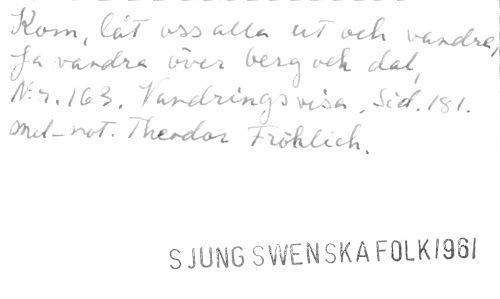 Kom, låt oss alla ut och vandra,
Ja vandra över berg och dal,
N:r. 163. Vandringsvisa, Sid. 181.
mel-not. Theodor Fröhlich.
SJUNG SWENSKA FOLK 1961